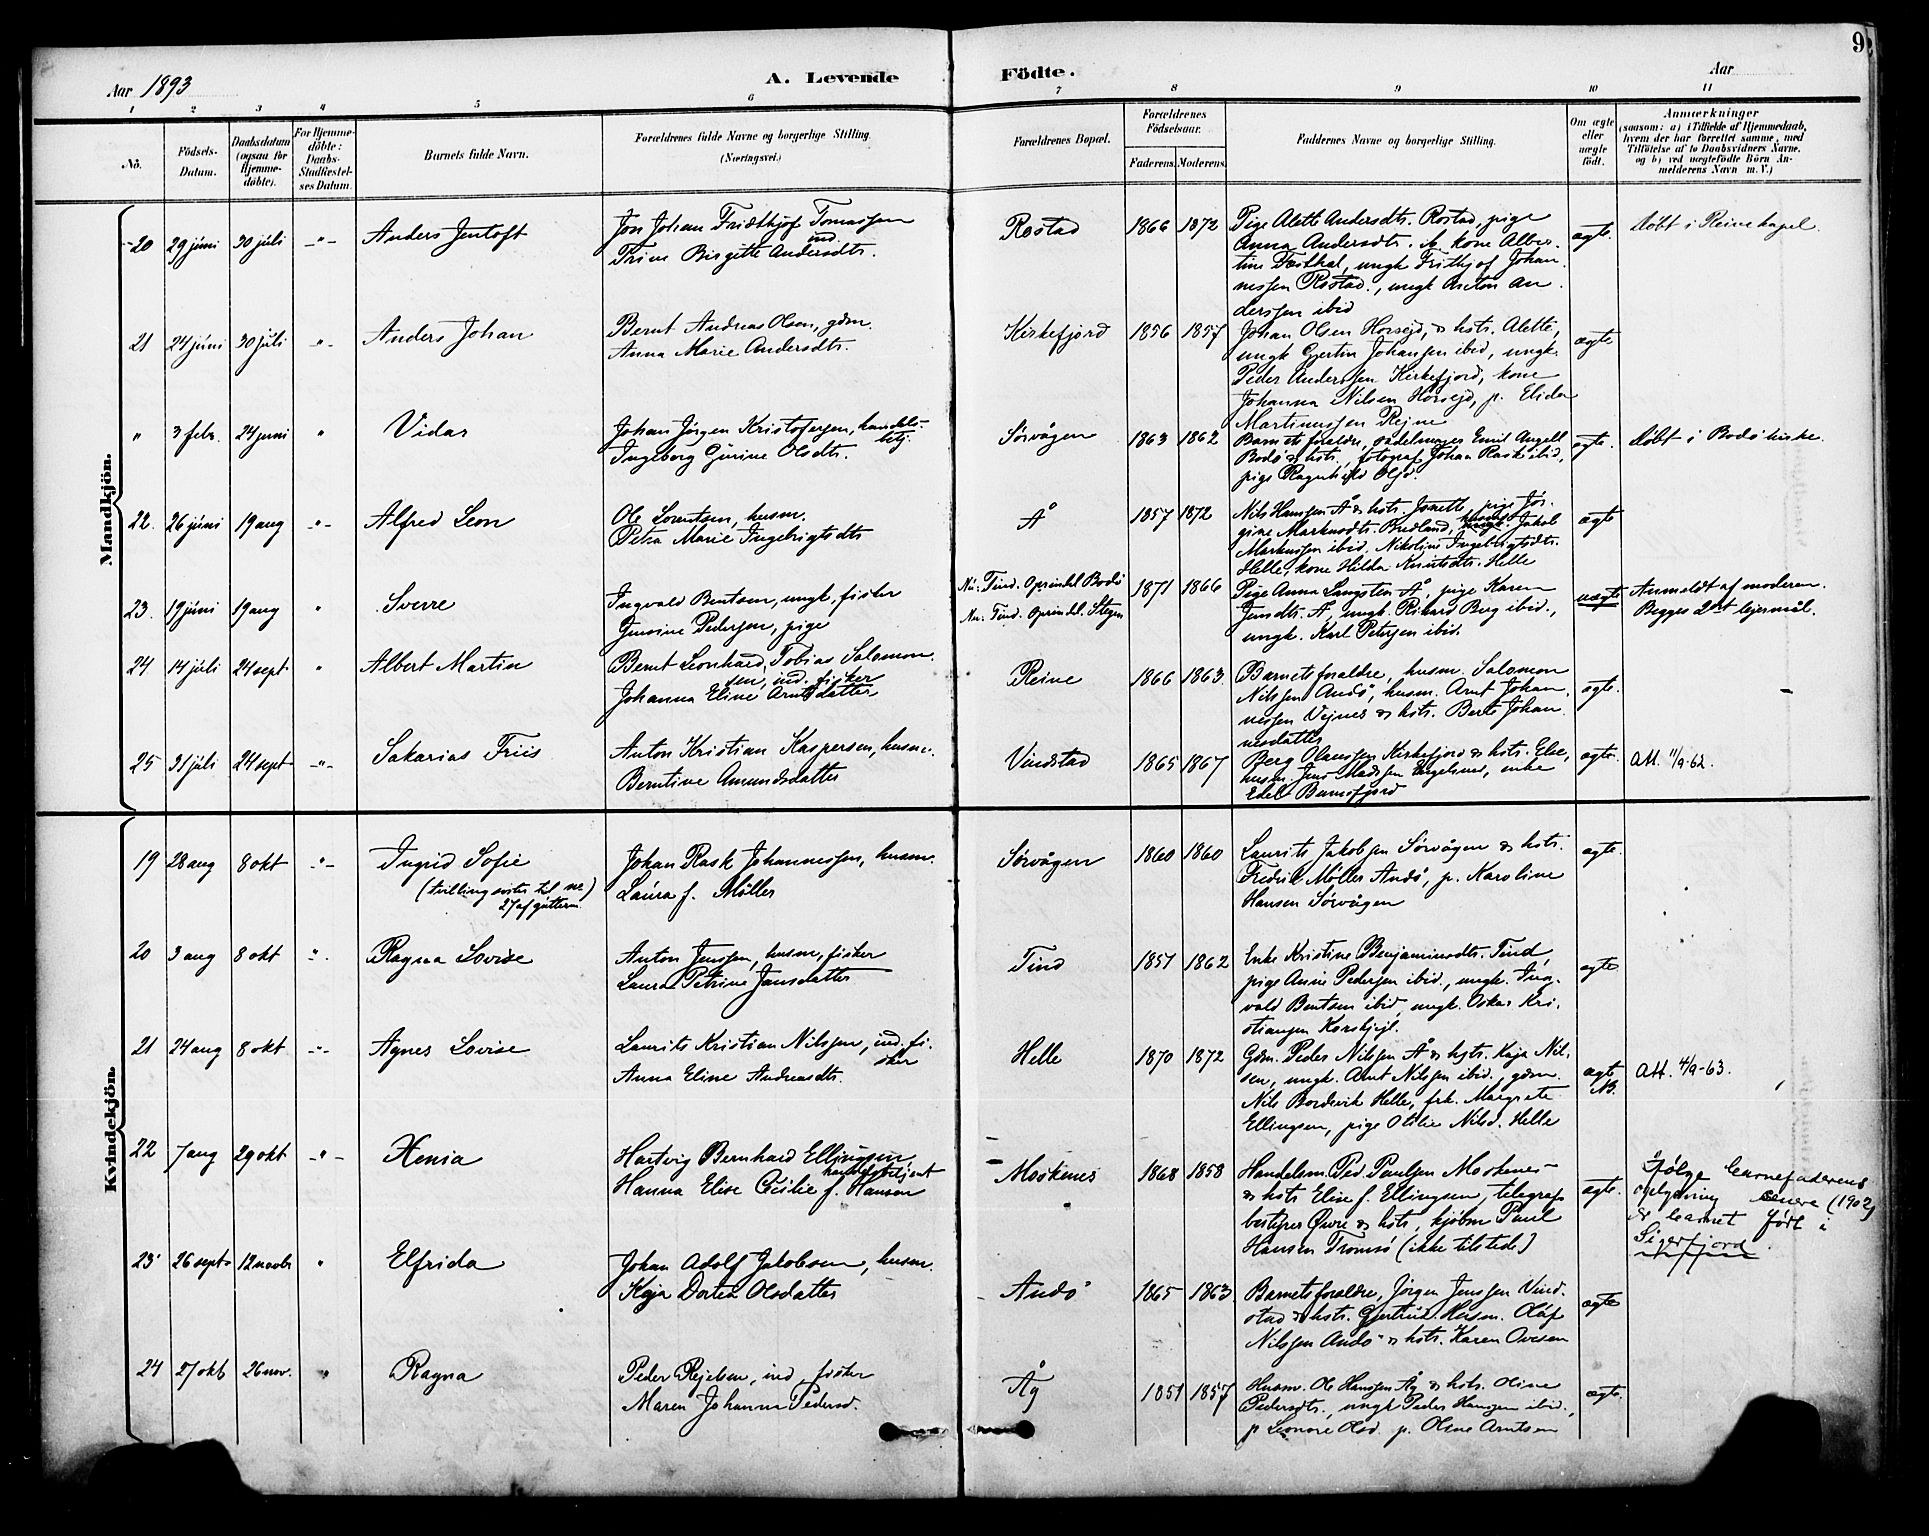 9
Aar 1893
A. Levende Födte.
Aar
1 2 3 4 5 6 7 8 9 10 11
No.
Födsels-Datum.
Daabsdatum (ogsaa for Hjemmedöbte).
For Hjemmedöbte: Daabs-Stadfæstelses Datum.
Barnets fulde Navn.
Forældrenes fulde Navne og borgerlige Stilling. (Næringsvei.)
Forældrenes Bopæl.
Forældrenes Födselsaar.
Faderens. Moderens.
Faddernes Navne og borgerlige Stilling.
Om ægte eller uægte födt.
Anmærkninger (saasom: a) i Tilfælde af Hjemmedaab, hvem der har forrettet samme, med Tilföielse af to Daabsvidners Navne, og b) ved uægtefödte Börn Anmelderens Navn m. V.)
Mandkjön.
20 29 juni 30 juli -"- Anders Jentoft
Jon Johan Fridthjof Tomassen ind.
Trine Birgitte Andersdtr.
Rostad 1866 1872
Pige Alette Andersdtr. Rostad, pige
Anna Andersdtr. ib, kone Alber-
tine Festhal, ungk Frithjof Johan
nessen Rostad., ungk Anton An
derssen ibid
ægte.
Døbt i Reine kapel.
21 24 juni 30 juli -"- Anders Johan
Bernt Andreas Olsen, gdm.
Anna Marie Andersdtr.
Kirkefjord 1856 1857
Johan Olsen Horseid, & hstr. Alette,
ungk Gjertin Johansen ibid, ungk.
Peder Anderssen Kirkefjord, kone
Johanna Nilsen Horseid, p. Elida
Martinussen Reine
ægte
" 3 febr. 24 juni " Vidar
Johan Jörgen Kristofersen, handels-
betj
Ingeborg Gurine Olsdtr.
Sørvågen 1863 1862
Barnets foraldre, sadelmager Emil Angell
Bodø & hstr., fotograf Johan Rask ibid,
pige Ragnhild Olsd.
ægte.
Døbt i Bodø kirke.
22. 26 juni 19 aug -"- Alfred Leon
Ole Lorentsen, husm.
Petra Marie Ingebrigtsdtr
Å 1857 1872
Nils Hanssen Å & hstr. Jonette, pige Jör-
gine Markusdtr. Bredland, Jakob
Markussen ibid. Nikoline Ingebrigtsdtr.
Helle, kone Hilda Knutsdtr. Helle
ægte
23. 19 juni 19 aug " Sverre
Ingvald Bentsen, ungk, fisker
Jensine Pedersen, pige
Nu: Tind. Oprindel Bodø
Nu: Tind. Oprindel. Stegen
1871 1866
Pige Anna Langsten Å, pige Karen
Jensdtr. Å, ungk. Rikard Berg ibid.,
ungk. Karl Petersen ibid.
uægte
Anmeldt af moderen.
Begges 2det lejermål.
24 14 juli 24 sept " Albert Martin
Bernt Leonhard Tobias Salomon-
sen, ind. fisker
Johanna Eline Arntsdatter
Reine 1866 1863.
Barnets foraldre, husm. Salomon
Nilssen Andö, husm. Arnt Johan
nessen Vejnes & hstr. Berte Johan
nesdatter
ægte.
25 31 juli 24 sept -"- Sakarias Friis
Anton Kristian Kaspersen, husm.
Berntine Amundsdatter
Vindstad 1865 1867
Berg Olaussen Kirkefjord & hstr. Else,
husm. Jens Madssen Engelsnes, enke
Edel Bunesfjord
ægte.
Att. 11/9-62.
Kvindekjön.
19 28 aug 8 okt -"- Ingrid Sofie
(tvillingsöster til no
27 af gutterne)
Johan Rask Johannessen, husm.
Laura f. Möller
Sørvågen 1860 1860
Laurits Jakobsen Sørvågen & hstr.
Fredrik Möller Andö, p. Karoline
Hansen Sørvågen
ægte.
20 3 aug 8 okt -"- Ragna Lovise
Anton Jenssen, husm, fisker
Laura Petrine Jansdatter
Tind 1851 1862
Enke Kristine Benjaminsdtr. Tind,
pige Anne Pedersen ibid., ungk. Ing-
vald Bentsen ibid, ungk. Oskar Kri-
stiansen
ægte
21 24 aug 8 okt -"- Agnes Lovise
Laurits Kristian Nilssen, ind. fi-
sker
Anna Eline Andreasdtr.
Helle 1870 1872
Gdm. Peder Nilssen Å & hstr. Kaja Nil-
sen, ungk. Arnt Nilssen ibid, gdm.
Nils Bordevik Helle, frk. Margrete
Ellingsen, pige Otilie Nilsd. Helle
ægte
NB.
Att. 4/9-63.
22 7 aug 29 okt -"- Xenia
Hartvig Bernhard Ellingsen
handelsbetjent
Hanna Elise Cecilie f. Hansen
Moskenes 1868 1858
Handelsm. Ped. Paulsen Moskenes
& hstr Elise f. Ellingsen, telegraf
bestyrer Övre & hstr, kjöbm Paul
Hansen Tromsö (ikke tilstede)
ægte.
Ifølge barnefaderens
oplysning senere (1902)
er barnet født i
Sigerfjord.
23 26 sept 12 novbr " Elfrida
Johan Adolf Jakobsen, husm.
Kaja Dortea Olsdatter
Andö 1865 1863.
Barnets foraldre, Jörgen Jenssen Vind-
stad & hstr. Gjertrud. Husm. Olaf
Nilssen Andö & hstr. Karen Ovesen
ægte
24 27 okt 26 nov. " Ragna
Peder Rejelsen, ind fisker
Maren Johanna Pedersd.
Åg 1851 1857
Husm. Ole Hanssen Åg & hstr. Oline
Pedersdtr., ungk Peder Hanssen ibid.,
p Leonore Olsd. p. Oline Arntsen
ægte.